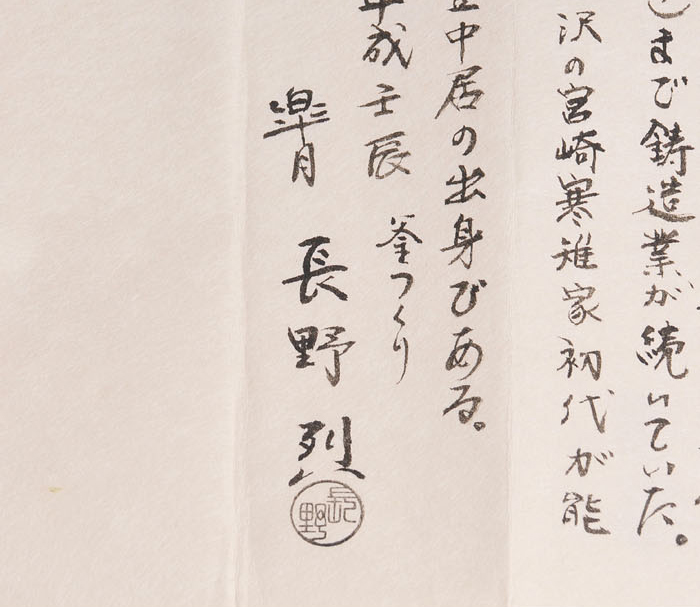 まで鋳造業が続いていた。
沢の宮崎寒雉家初代が能
中居の出身である。
平成壬辰 釜つくり
皐月 長野烈
長野